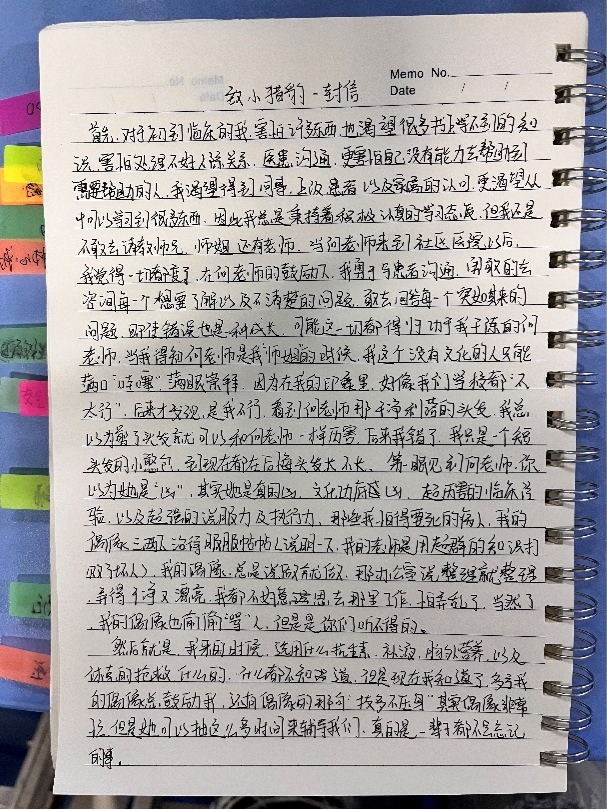 Memo No.
Date / /
致小猎豹一封信
首先,对于初到临床的我,害怕许多东西,也渴望很多书上学不到的知
识,害怕处理不好人际关系、医患沟通,更害怕自己没有能力去帮助到
需要帮助的人,我渴望得到同事、上级、患者以及家属的认可,更渴望从
中可以学习到很多东西,因此我总是秉持着积极认真的学习态度,但我还是
不敢去请教师兄、师姐还有老师。当何老师来到社区医院以后,
我觉得一切都变了,在何老师的鼓励下,我勇于与患者沟通,勇敢的去
咨询每一个想要了解以及不清楚的问题,敢去回答每一个突如其来的
问题,即使错误也是一种成长,可能这一切都得归功于我干练的何
老师,当我得知何老师是我"师姐"的时候,我这个没有文化的人只能
满口"哇噻"满眼崇拜,因为在我的印象里,好像我们学校都"不
太行",后来才发现,是我不行,看到何老师那干净利落的头发,我总
以为剪了头发就可以和何老师一样厉害,后来我错了,我只是一个短
头发的小憨包,到现在都在后悔头发太不长、第一眼见到何老师,你
以为她是"凶",其实她是真的凶,文化功底凶,超厉害的临床经
验,以及超强的说服力及执行力,那些我怕得要死的病人,我的
偶像三两人治得服服帖帖(说明一下,我的老师是用超群的知识打
败了坏人),我的偶像总是说做就做,那办公室说整理就整理
弄得干净又漂亮,我都不好意思去那里工作,怕弄乱了,当然了
,我的偶像也偷偷"骂"人,但是是你们听不得的。
然后就是,我来的时候,选用什么抗生素、补液、肠外营养,以及
休克的抢救什么的,什么都不知道,但是现在我知道了,多亏我
的偶像总鼓励我,还有偶像的那句"技多不压身"其实偶像非常
忙,但是她可以抽这么多时间来辅导我们,真的是一辈子都不会忘记
的事。